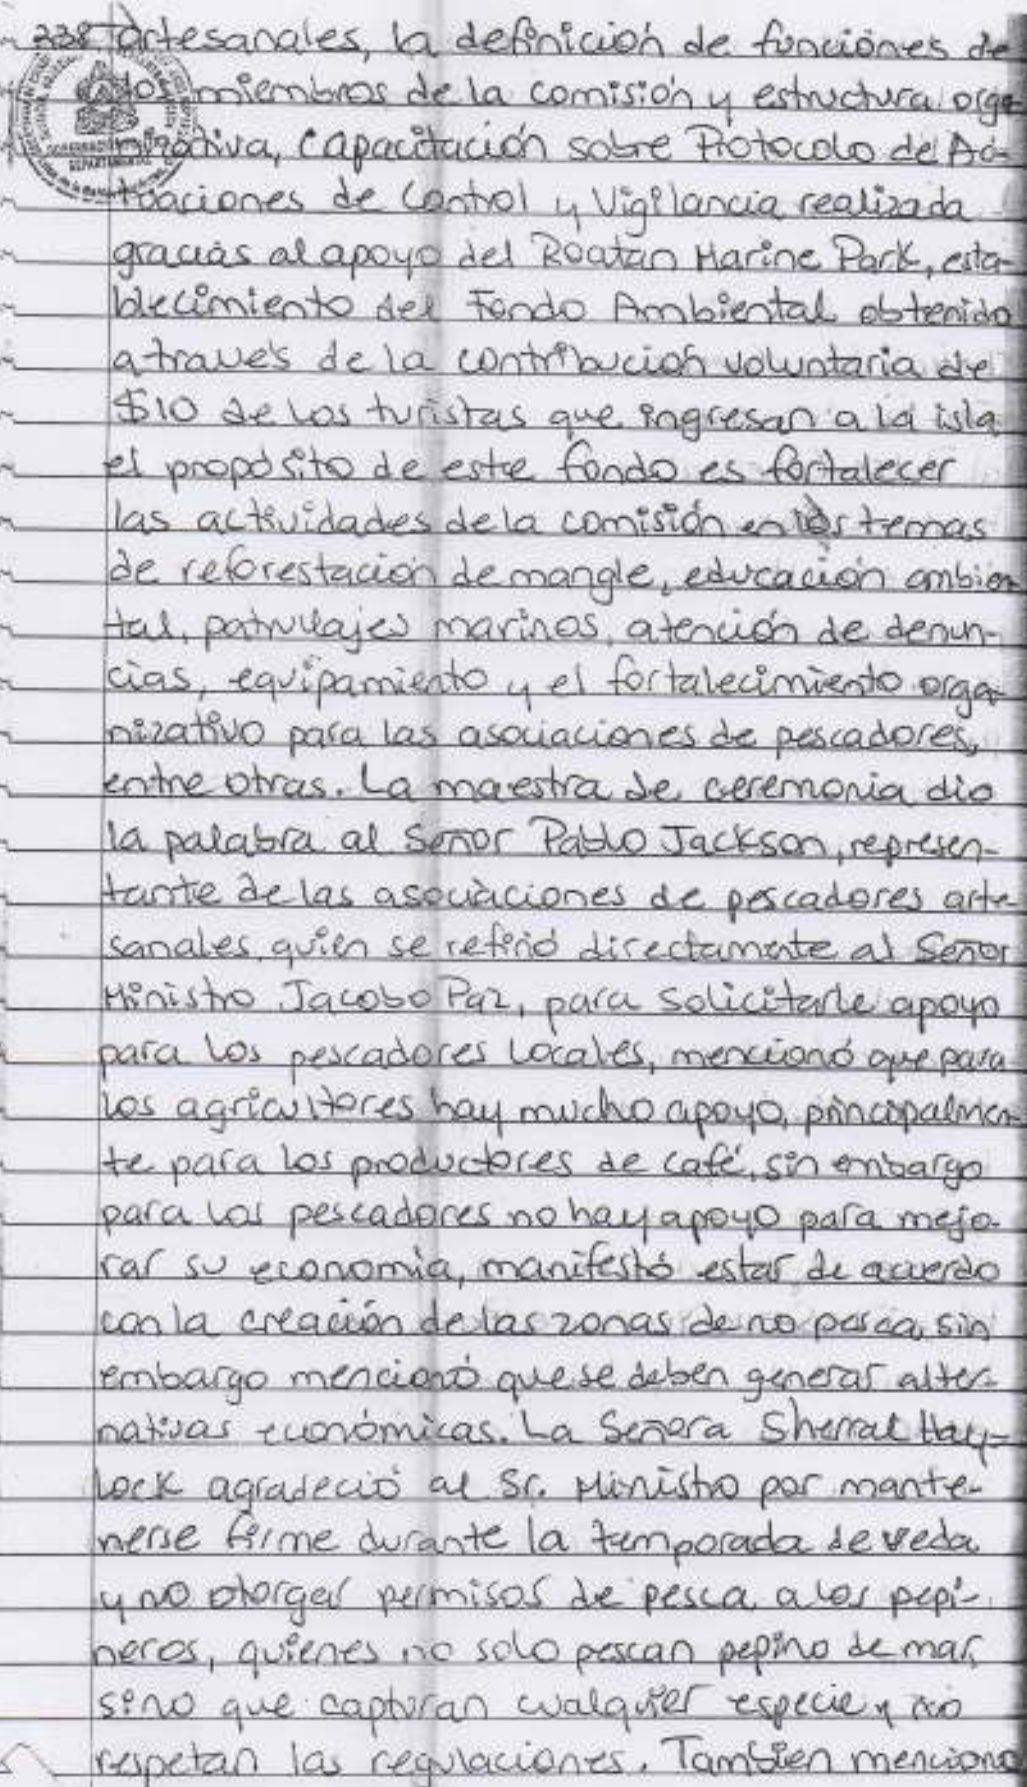 238 artesanales, la definición de funciones de
los miembros de la comisión y estructura orga-
nizativa, Capacitación sobre Protocolo de Ac-
tuaciones de Control y Vigilancia realizada
gracias al apoyo del Roatan Marine Park, esta-
blecimiento del Fondo Ambiental obtenido
a través de la contribución voluntaria de
$10 de los turistas que ingresan a la isla
el propósito de este fondo es fortalecer
las actividades de la comisión en los temas
de reforestación de mangle, educación ambien-
tal, patrullajes marinos, atención de denun-
cias, equipamiento y el fortalecimiento orga-
nizativo para las asociaciones de pescadores,
entre otras. La maestra de ceremonia dio
la palabra al Señor Pablo Jackson, represen-
tante de las asociaciones de pescadores arte-
sanales, quién se refirió directamente al Señor
Ministro Jacobo Paz, para solicitarle apoyo
para los pescadores locales, mencionó que para
los agricultores hay mucho apoyo, principalmen-
te para los productores de café, sin embargo
para los pescadores no hay apoyo para mejo-
rar su economía, manifestó estar de acuerdo
con la creación de las zonas de no pesca, sin
embargo mencionó que se deben generar alter-
nativas económicas. La Señora Sherral Hay-
lock agradeció al Sr. Ministro por mante-
nerse firme durante la temporada de veda
y no otorgar permisos de pesca a los pepi-
neros, quienes no solo pescan pepino de mar,
sino que capturan cualquier especie y no
respetan las regulaciones. Tambien menciono